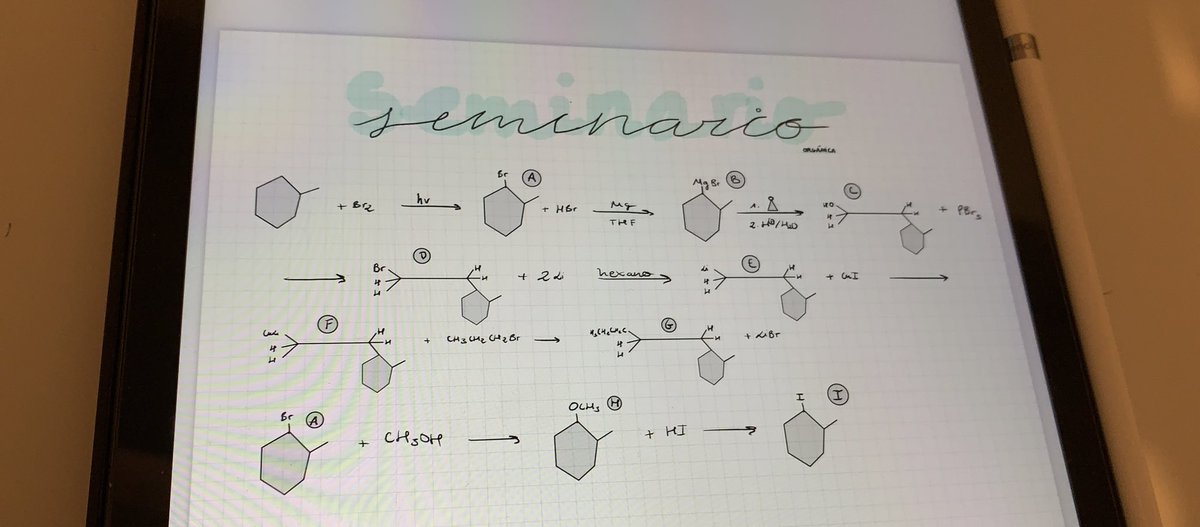 seminario
ORGÁNICA
+ Br2 hν Br A + HBr Mg THF MgBr B 1. 2. H⊕/H2O C HO H H H H + PBr3
Br H H D H H + 2 Li hexano Li H H E H H + CuI
CuLi H H F H H + CH3CH2CH2Br H3CH2CH2C H H G H H + LiBr
Br A + CH3OH OCH3 H + HI I I